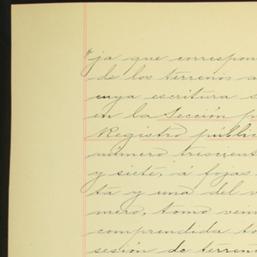 ja que correspon
de los terrenos a
cuya escritura s
en la Sección p
Registro públic
número trescient
y siete, á fojas
ta y una del v
mero, tomo vein
comprendida to
sesión de terren